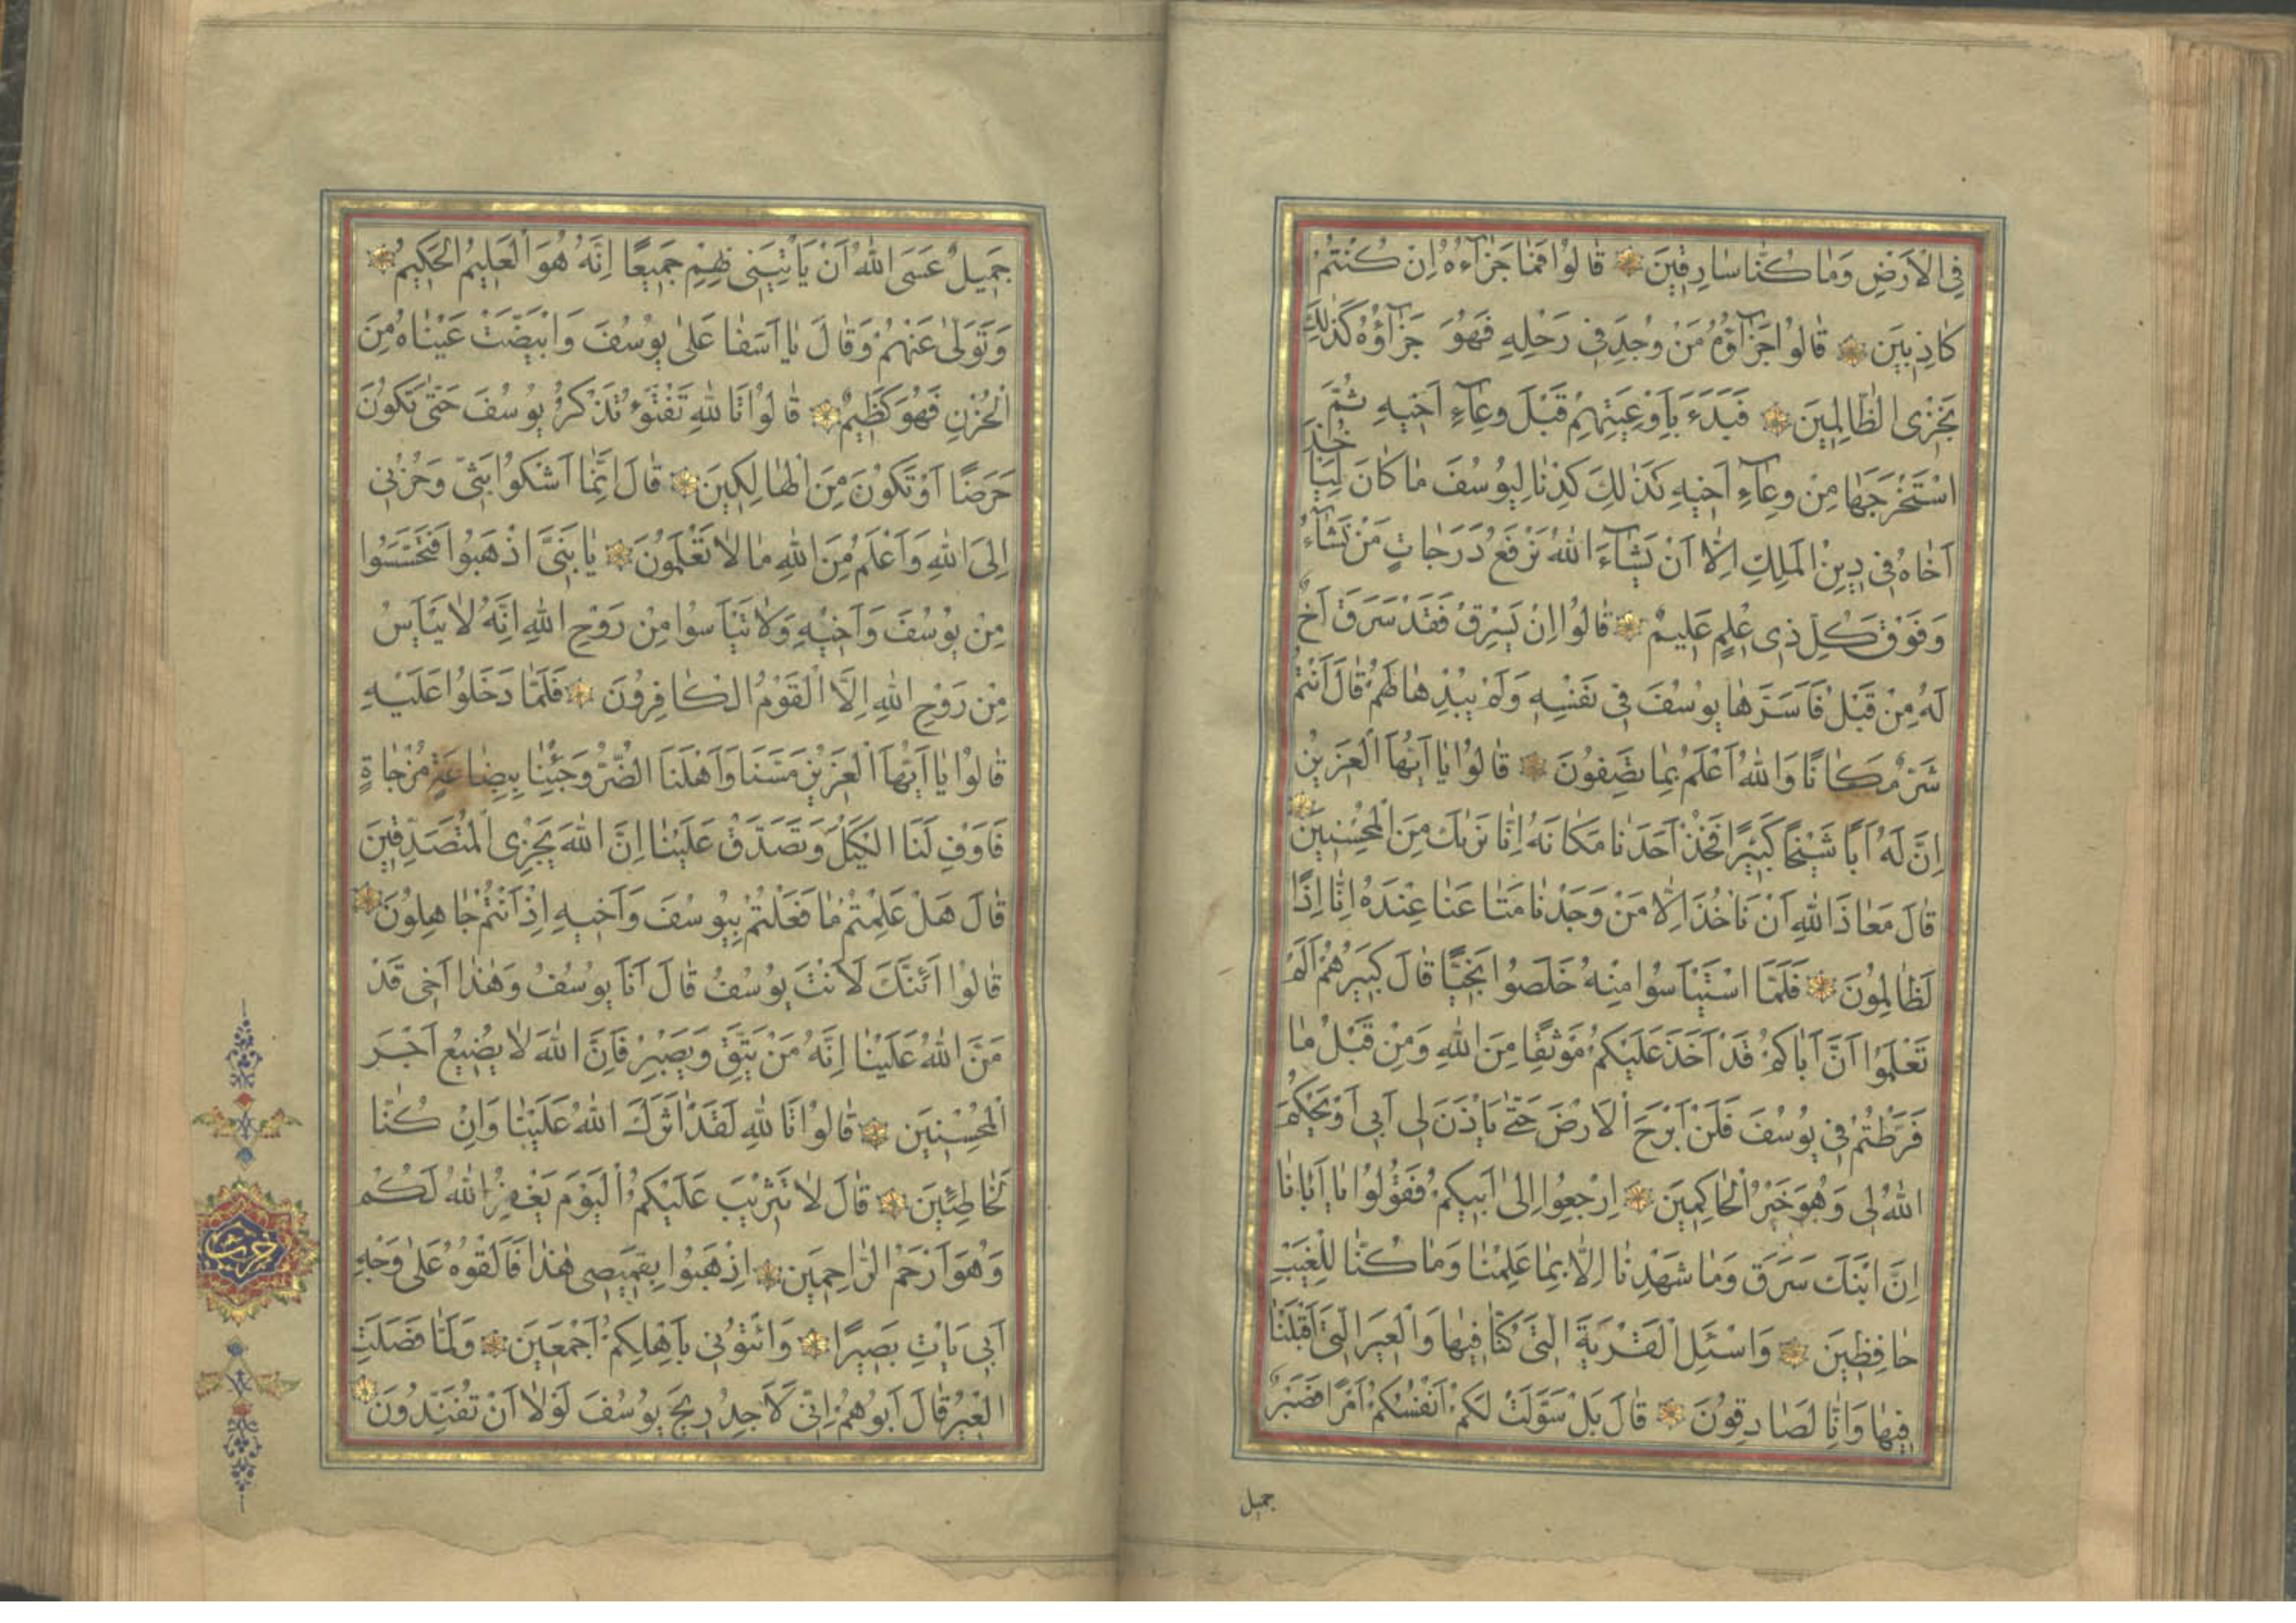 فِي الْاَرْضِ وَمَا كُنَّا سَارِقِينَ قَالُوا فَمَا جَزَآءُهُ اِنْ كُنْتُمْ
كَاذِبِينَ قَالُوا جَزَآؤُهُ مَنْ وُجِدَ فِي رَحْلِهِ فَهُوَ جَزَآؤُهُ كَذٰلِكَ
نَجْزِي الظَّالِمِينَ فَبَدَءَ بِاَوْعِيَتِهِمْ قَبْلَ وِعَآءِ اَخِيهِ ثُمَّ
اسْتَخْرَجَهَا مِنْ وِعَآءِ اَخِيهِ كَذٰلِكَ كِدْنَا لِيُوسُفَ مَا كَانَ لِيَاْخُذَ
اَخَاهُ فِي دِينِ الْمَلِكِ اِلَّا اَنْ يَشَآءَ اللّٰهُ نَرْفَعُ دَرَجَاتٍ مَنْ نَشَآءُ
وَفَوْقَ كُلِّ ذِي عِلْمٍ عَلِيمٌ قَالُوا اِنْ يَسْرِقْ فَقَدْ سَرَقَ اَخٌ
لَهُ مِنْ قَبْلُ فَاَسَرَّهَا يُوسُفَ فِي نَفْسِهِ وَلَمْ يُبْدِهَا لَهُمْ قَالَ اَنْتُمْ
شَرٌّ مَكَانًا وَاللّٰهُ اَعْلَمُ بِمَا تَصِفُونَ قَالُوا يَا اَيُّهَا الْعَزِيزُ
اِنَّ لَهُ اَبًا شَيْخًا كَبِيرًا فَخُذْ اَحَدَنَا مَكَانَهُ اِنَّا نَرٰيكَ مِنَ الْمُحْسِنِينَ
قَالَ مَعَاذَ اللّٰهِ اَنْ نَاْخُذَ اِلَّا مَنْ وَجَدْنَا مَتَاعَنَا عِنْدَهُ اِنَّا اِذًا
لَظَالِمُونَ فَلَمَّا اسْتَيْاَسُوا مِنْهُ خَلَصُوا نَجِيًّا قَالَ كَبِيرُهُمْ اَلَمْ
تَعْلَمُوا اَنَّ اَبَاكُمْ قَدْ اَخَذَ عَلَيْكُمْ مَوْثِقًا مِنَ اللّٰهِ وَمِنْ قَبْلُ مَا
فَرَّطْتُمْ فِي يُوسُفَ فَلَنْ اَبْرَحَ الْاَرْضَ حَتّٰى يَاْذَنَ لِي اَبِي اَوْ يَحْكُمَ
اللّٰهُ لِي وَهُوَ خَيْرُ الْحَاكِمِينَ اِرْجِعُوا اِلٰى اَبِيكُمْ فَقُولُوا يَا اَبَانَا
اِنَّ ابْنَكَ سَرَقَ وَمَا شَهِدْنَا اِلَّا بِمَا عَلِمْنَا وَمَا كُنَّا لِلْغَيْبِ
حَافِظِينَ وَاسْئَلِ الْقَرْيَةَ الَّتِي كُنَّا فِيهَا وَالْعِيرَ الَّتِي اَقْبَلْنَا
فِيهَا وَاِنَّا لَصَادِقُونَ قَالَ بَلْ سَوَّلَتْ لَكُمْ اَنْفُسُكُمْ اَمْرًا فَصَبْرٌ
جميل
جَمِيلٌ عَسَى اللّٰهُ اَنْ يَاْتِيَنِي بِهِمْ جَمِيعًا اِنَّهُ هُوَ الْعَلِيمُ الْحَكِيمُ
وَتَوَلّٰى عَنْهُمْ وَقَالَ يَا اَسَفَا عَلٰى يُوسُفَ وَابْيَضَّتْ عَيْنَاهُ مِنَ
الْحُزْنِ فَهُوَ كَظِيمٌ قَالُوا تَاللّٰهِ تَفْتَؤُ تَذْكُرُ يُوسُفَ حَتّٰى تَكُونَ
حَرَضًا اَوْ تَكُونَ مِنَ الْهَالِكِينَ قَالَ اِنَّمَا اَشْكُوا بَثِّي وَحُزْنِي
اِلَى اللّٰهِ وَاَعْلَمُ مِنَ اللّٰهِ مَا لَا تَعْلَمُونَ يَا بَنِيَّ اذْهَبُوا فَتَحَسَّسُوا
مِنْ يُوسُفَ وَاَخِيهِ وَلَا تَيْاَسُوا مِنْ رَوْحِ اللّٰهِ اِنَّهُ لَا يَيْاَسُ
مِنْ رَوْحِ اللّٰهِ اِلَّا الْقَوْمُ الْكَافِرُونَ فَلَمَّا دَخَلُوا عَلَيْهِ
قَالُوا يَا اَيُّهَا الْعَزِيزُ مَسَّنَا وَاَهْلَنَا الضُّرُّ وَجِئْنَا بِبِضَاعَةٍ مُزْجَاةٍ
فَاَوْفِ لَنَا الْكَيْلَ وَتَصَدَّقْ عَلَيْنَا اِنَّ اللّٰهَ يَجْزِي الْمُتَصَدِّقِينَ
قَالَ هَلْ عَلِمْتُمْ مَا فَعَلْتُمْ بِيُوسُفَ وَاَخِيهِ اِذْ اَنْتُمْ جَاهِلُونَ
قَالُوا اَئِنَّكَ لَاَنْتَ يُوسُفُ قَالَ اَنَا يُوسُفُ وَهٰذَا اَخِي قَدْ
مَنَّ اللّٰهُ عَلَيْنَا اِنَّهُ مَنْ يَتَّقِ وَيَصْبِرْ فَاِنَّ اللّٰهَ لَا يُضِيعُ اَجْرَ
الْمُحْسِنِينَ قَالُوا تَاللّٰهِ لَقَدْ اٰثَرَكَ اللّٰهُ عَلَيْنَا وَاِنْ كُنَّا
لَخَاطِئِينَ قَالَ لَا تَثْرِيبَ عَلَيْكُمُ الْيَوْمَ يَغْفِرُ اللّٰهُ لَكُمْ
وَهُوَ اَرْحَمُ الرَّاحِمِينَ اِذْهَبُوا بِقَمِيصِي هٰذَا فَاَلْقُوهُ عَلٰى وَجْهِ
اَبِي يَاْتِ بَصِيرًا وَائْتُونِي بِاَهْلِكُمْ اَجْمَعِينَ وَلَمَّا فَصَلَتِ
الْعِيرُ قَالَ اَبُوهُمْ اِنِّي لَاَجِدُ رِيحَ يُوسُفَ لَوْلَا اَنْ تُفَنِّدُونَ
حزب